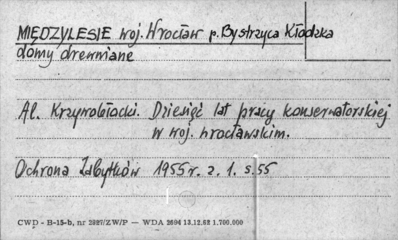 MIĘDZYLESIE woj. Wrocław p. Bystrzyca Kłodzka
domy drewniane
Al. Krzywobłocki. Dziesięć lat pracy konserwatorskiej
w woj. wrocławskim.
Ochrona Zabytków 1955 r. z. 1. s. 55
CWD - B-15-b, nr 2987/ZW/P — WDA 2694 13.12.62 1.700.000